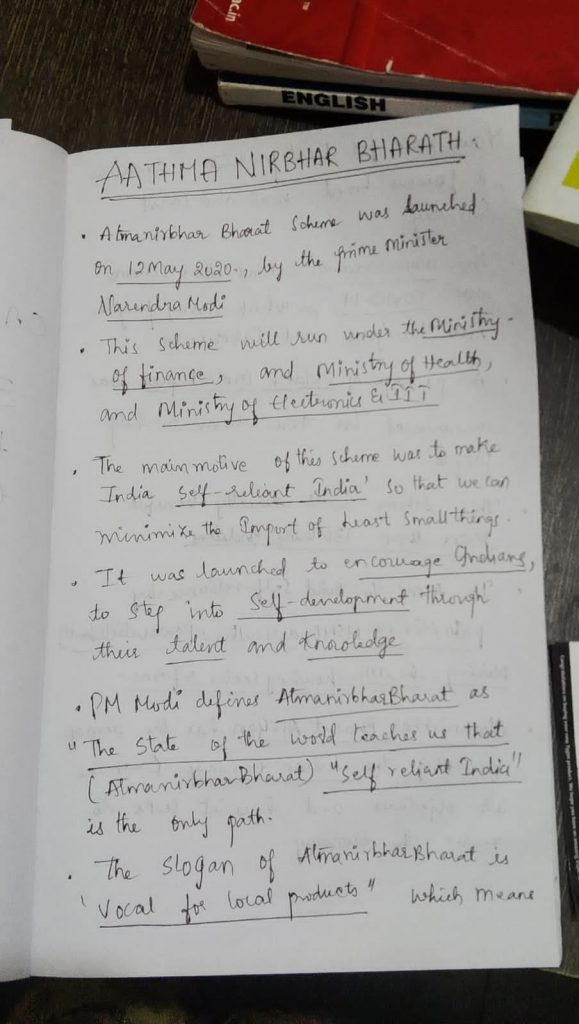 ac.in
ENGLISH
AATHMA NIRBHAR BHARATH
• Atmanirbhar Bharat Scheme was launched
on 12 May 2020., by the prime Minister
Narendra Modi
• This Scheme will run under the Ministry
of finance, and Ministry of Health,
and Ministry of Electronics & IIT
• The main motive of this Scheme was to make
India Self-reliant India' so that we can
minimize the Import of Least Small things.
• It was launched to encourage Indians,
to step into Self-development through
their talent and Knowledge
• PM Modi defines Atmanirbhar Bharat as
"The State of the world teaches us that
(Atmanirbhar Bharat) "Self reliant India"
is the only path.
• The Slogan of Atmanirbhar Bharat is
'Vocal for local products" Which means